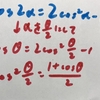 cos2α = 2cos²α -
↓αを θ/2 にして
cosθ = 2cos² θ/2 - 1
cos² θ/2 = 1+cosθ/2